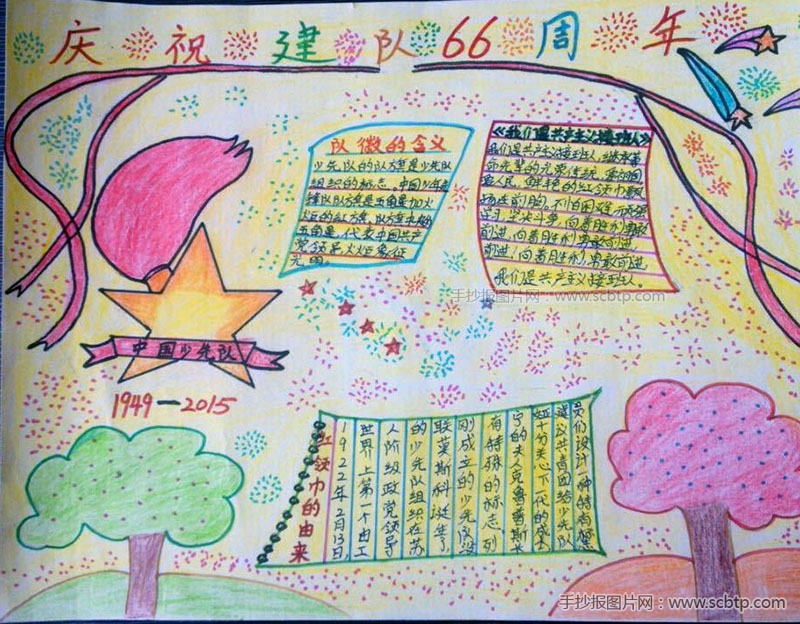 庆祝建队66周年
队徽的含义
少先队的队旗是少先队
组织的标志。中国少年先
锋队队旗是五角星加火
炬的红旗,队旗中央的
五角星,代表中国共产
党领导,火炬象征
光明。
《我们是共产主义接班人》
我们是共产主义接班人,继承革
命先辈的光荣传统,爱祖国
爱人民,鲜艳的红领巾飘
扬在前胸,不怕困难
学习,坚决斗争,向着胜利勇敢
前进,向着胜利勇敢前进
前进,向着胜利勇敢前进
我们是共产主义接班人。
手抄报图片网:www.scbtp.com
中国少先队
1949—2015
红领巾的由来
1922年2月13日,
世界上第一个由工
人阶级政党领导
的少先队组织在苏
联莫斯科诞生了
刚成立的少先队没
有特殊的标志列
宁的夫人克鲁普斯卡
娅十分关心下一代的成
建议共青团给少先队
员们设计一种特有标志
手抄报图片网:www.scbtp.com